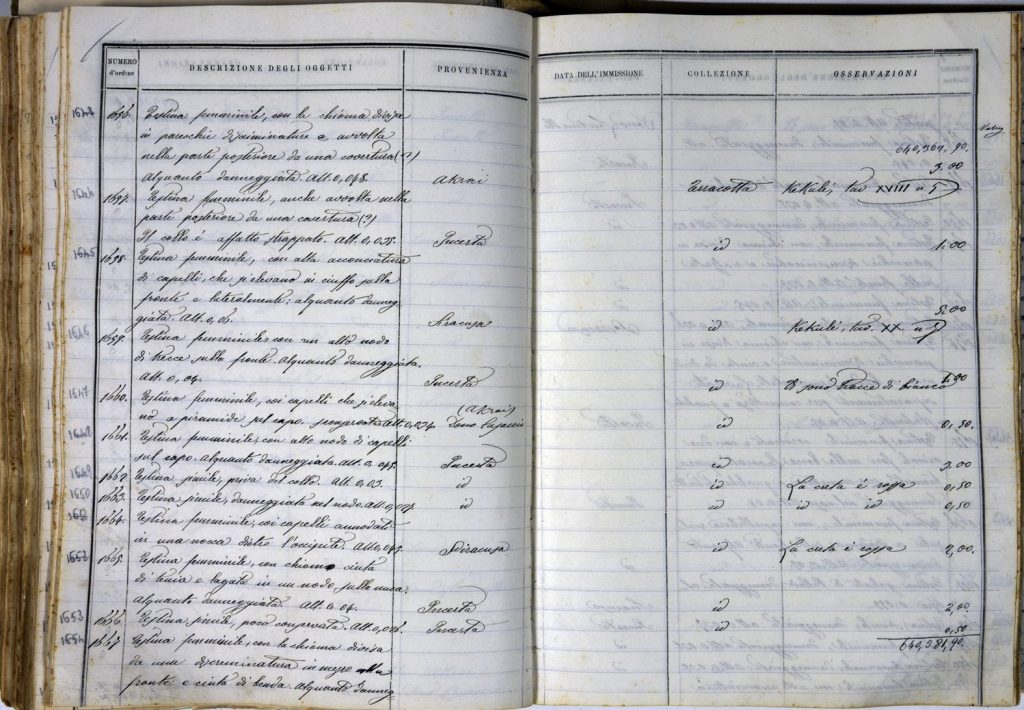 NUMERO d'ordine DESCRIZIONE DEGLI OGGETTI PROVENIENZA DATA DELL'IMMISSIONE COLLEZIONE OSSERVAZIONI
1656. Testina femminile, con la chioma divisa
in parecchie discriminature e avvolta
nella parte posteriore da una covertura (?) 640,364,90.
Alquanto danneggiata. Alt. 0,048. Akrai 3.00
1644 1657. Testina femminile, anche avvolta nella Terracotta Kekulé, Tav XVIII n 5
parte posteriore da una covertura (?)
Il collo è affatto strappato. Alt. 0,035. Incerta id 1.00
1645 1658. Testina femminile, con alta acconciatura
di capelli, che si elevano in ciuffo sulla
fronte e lateralmente; alquanto danneg
giata. Alt. 0, Siracusa 5.00
1646 1659. Testina femminile con un alto nodo id Kekulé, Tav. XX. n
di trecce sulla fronte. Alquanto danneggiata.
Alt. 0,04. Incerta id Vi sono tracce di bianco
1647 1660. Testina femminile, coi capelli che si eleva (Akrai)
no a piramide sul capo. Alt. 0,034 Dono id 0,50.
1648 1661. Testina femminile, con alto nodo di capelli
sul capo. Alquanto danneggiata. Alt. 0,045. Incerta id 3.00
1649 1662. Testina simile, priva del collo. Alt. 0,03. id id La creta è rossa 0,50
1650 1663. Testina simile, danneggiata nel nodo. Alt. id id id id 0,50
1651 1664. Testina femminile, coi capelli annodati
in una nocca dietro l'occipite. Alt. 0,045. Siracusa id La creta è rossa 2,00.
1652 1665. Testina femminile, con chioma cinta
di tenia e legata in un nodo sulla nuca.
Alquanto danneggiata. Alt. 0,04. Incerta id 2,00
1653 1666. Testina simile, poco conservata. Alt. Incerta id 0,50
1654 1667. Testina femminile, con la chioma divisa 640,381,90.
da una discriminatura in mezzo alla
fronte e cinta di benda. Alquanto danneg